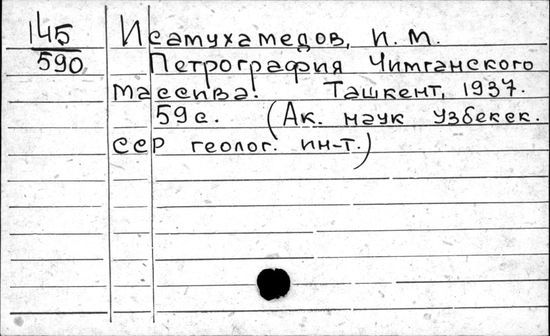 145 Исамухамедов, И. М.
590 Петрография Чимганского
массива. Ташкент, 1937.
59 с. (Ак. наук Узбекск.
ССР геолог. ин-т.)